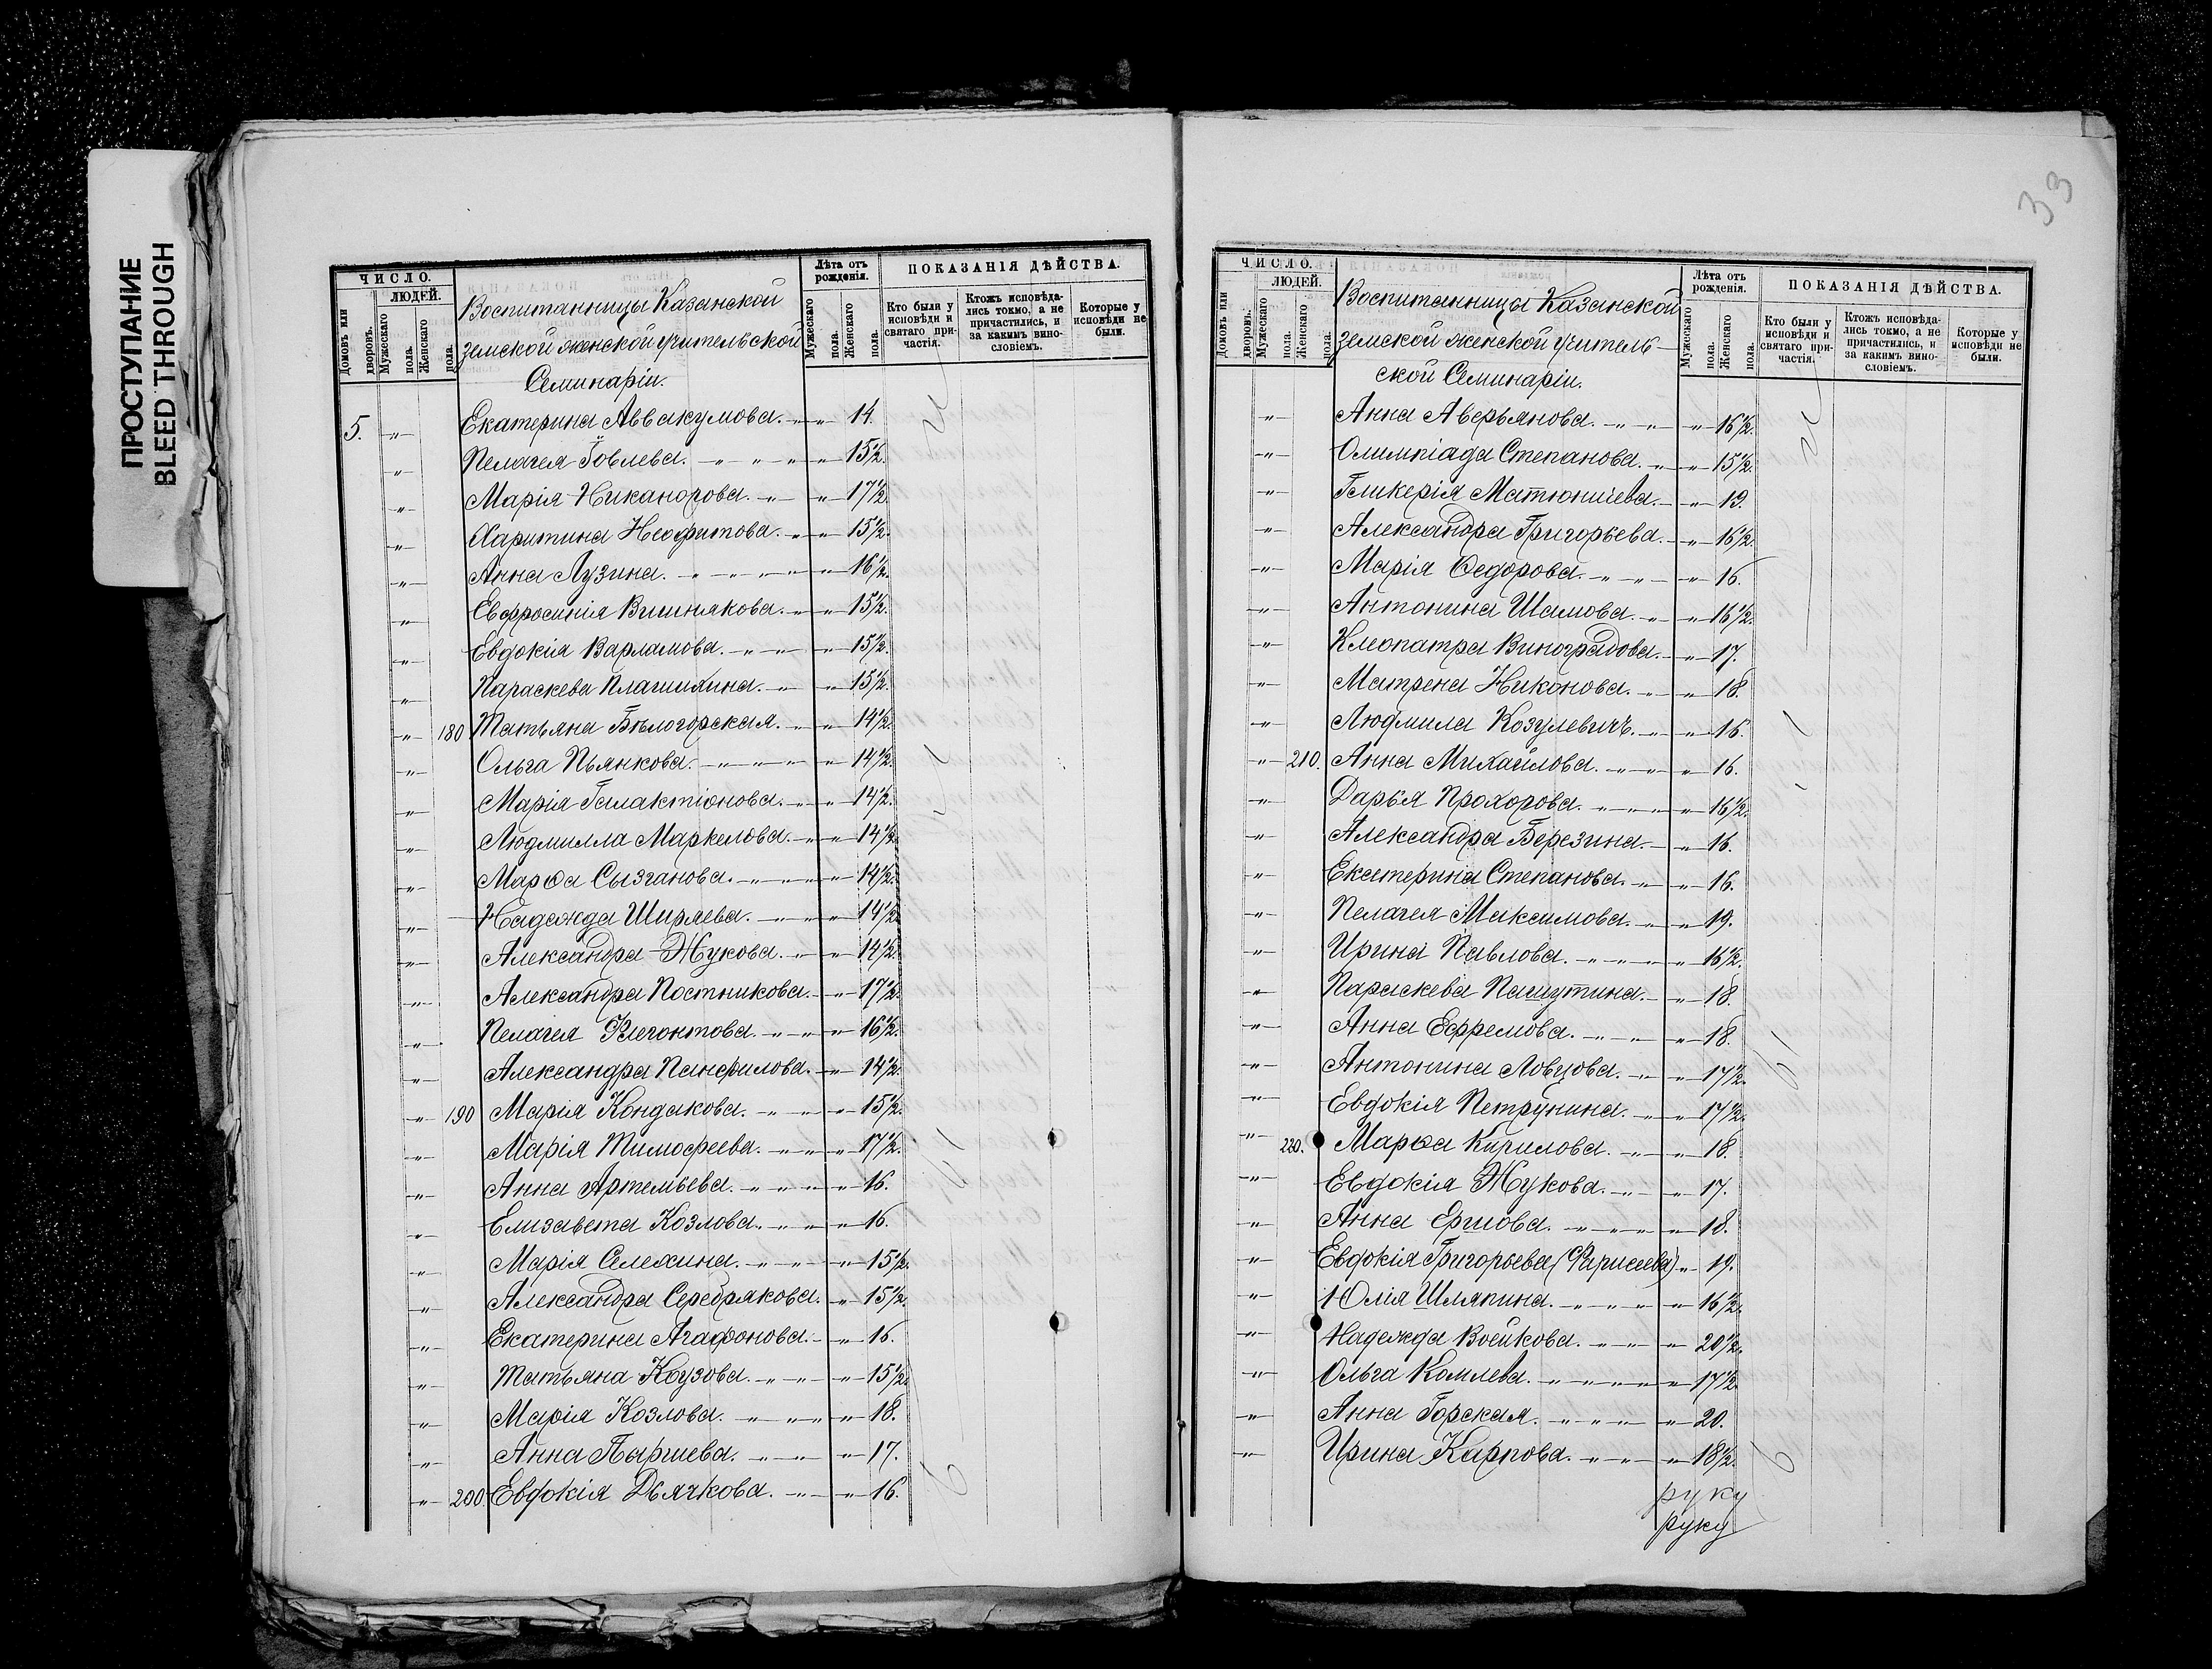 ПРОСТУПАНИЕ
BLEED THROUGH
ЧИСЛО.
ЛЮДЕЙ.
Домовъ или дворовъ.
Мужескаго пола.
Женскаго пола.
Воспитанницы Казанской
земской женской учительской
Семинаріи.
Лѣта отъ рожденія.
Мужескаго пола.
Женскаго пола.
ПОКАЗАНІЯ ДѢЙСТВА.
Кто были у исповѣди и святаго причастія.
Ктожъ исповѣдались токмо, а не причастились, и за какимъ винословіемъ.
Которые у исповѣди не были.
5. „ Екатерина Аввакумова. „ „ 14.
„ Пелагея Говлева. „ „ „ „ 15½.
„ Марія Никанорова. „ „ 17½.
„ Харитина Неофитова. „ „ 15½.
„ Анна Лузина. „ „ „ „ „ 16½.
„ Евфросинія Вишнякова. „ „ 15½.
„ Евдокія Варламова. „ „ „ 15½.
„ Параскева Плашихина. „ „ 15½.
„ 180 Татьяна Бѣлогорская. „ „ 14½.
„ Ольга Пьянкова. „ „ „ „ 14½.
„ Марія Галактіонова. „ „ 14½.
„ Людмилла Маркелова. „ „ 14½.
„ Марѳа Сызганова. „ „ „ „ 14½.
„ Надежда Ширяева. „ „ „ 14½.
„ Александра Жукова. „ „ 14½.
„ Александра Постникова. „ 17½.
„ Пелагея Флегонтова. „ „ „ 16½.
„ Александра Панфилова. „ 14½.
„ 190 Марія Кондакова. „ „ „ 15½.
„ Марія Тимофеева. „ „ „ 17½.
„ Анна Артемьева. „ „ „ „ 16.
„ Елизавета Козлова. „ „ „ 16.
„ Марія Селехина. „ „ „ „ 15½.
„ Александра Серебрякова. „ 15½.
„ Екатерина Агафонова. „ 16.
„ Татьяна Коузова. „ „ „ 15½.
„ Марія Козлова. „ „ „ „ 18.
„ Анна Паршева. „ „ „ 17.
„ 200 Евдокія Дьячкова. „ „ 16.
33
ЧИСЛО.
ЛЮДЕЙ.
Домовъ или дворовъ.
Мужескаго пола.
Женскаго пола.
Воспитанницы Казанской
земской женской учитель-
ской Семинаріи.
Лѣта отъ рожденія.
Мужескаго пола.
Женскаго пола.
ПОКАЗАНІЯ ДѢЙСТВА.
Кто были у исповѣди и святаго причастія.
Ктожъ исповѣдались токмо, а не причастились, и за какимъ винословіемъ.
Которые у исповѣди не были.
„ Анна Аверьянова. „ „ „ 16½.
„ Олимпіада Степанова. „ „ 15½.
„ Гликерія Матюничева. „ 19.
„ Александра Григорьева. „ 16½.
„ Марія Ѳедорова. „ „ „ 16.
„ Антонина Шамова. „ „ 16½.
„ Клеопатра Виноградова. „ 17.
„ Матрена Никонова. „ „ 18.
„ Людмила Козулевичъ. „ „ 16.
„ 210. Анна Михайлова. „ „ „ 16.
„ Дарья Прохорова. „ „ „ „ 16½.
„ Александра Березина. „ 16.
„ Екатерина Степанова. „ „ 16.
„ Пелагея Максимова. „ „ 19.
„ Ирина Павлова. „ „ „ „ 16½.
„ Параскева Пашутина. „ 18.
„ Анна Ефремова. „ „ „ „ 18.
„ Антонина Ловцова. „ „ 17½.
„ Евдокія Петрунина. „ „ 17½.
„ 220. Марѳа Кирилова. „ „ „ 18.
„ Евдокія Жукова. „ „ „ 17.
„ Анна Ершова. „ „ „ „ „ 18.
„ Евдокія Григорьева (Фарисеева) „ 19.
„ Юлія Шляпина. „ „ „ „ 16½.
„ Надежда Воейкова. „ „ „ 20½.
„ Ольга Комлева. „ „ „ „ „ 17½.
„ Анна Горская. „ „ „ „ 20.
„ Ирина Карпова. „ „ „ „ 18½.
руку
руку